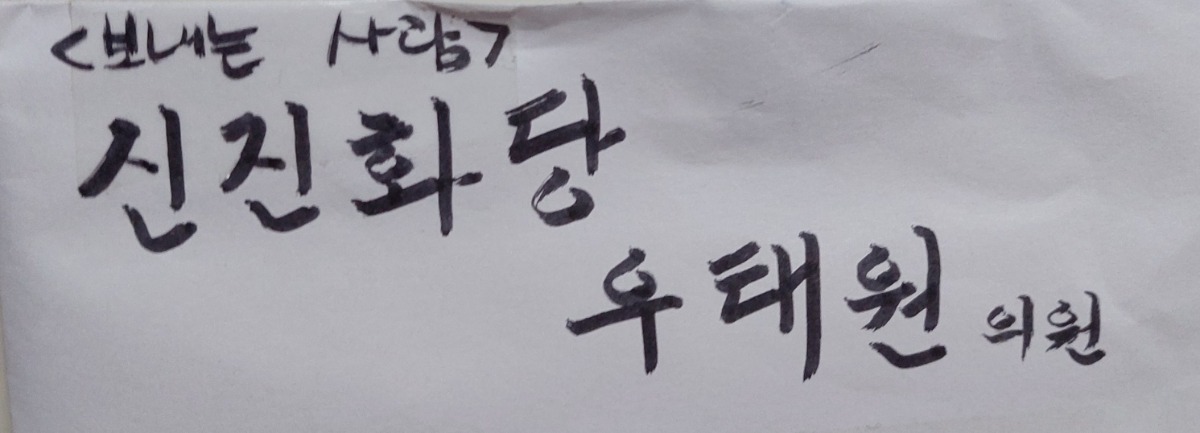 <보내는 사람>
신진화당
우태원 의원